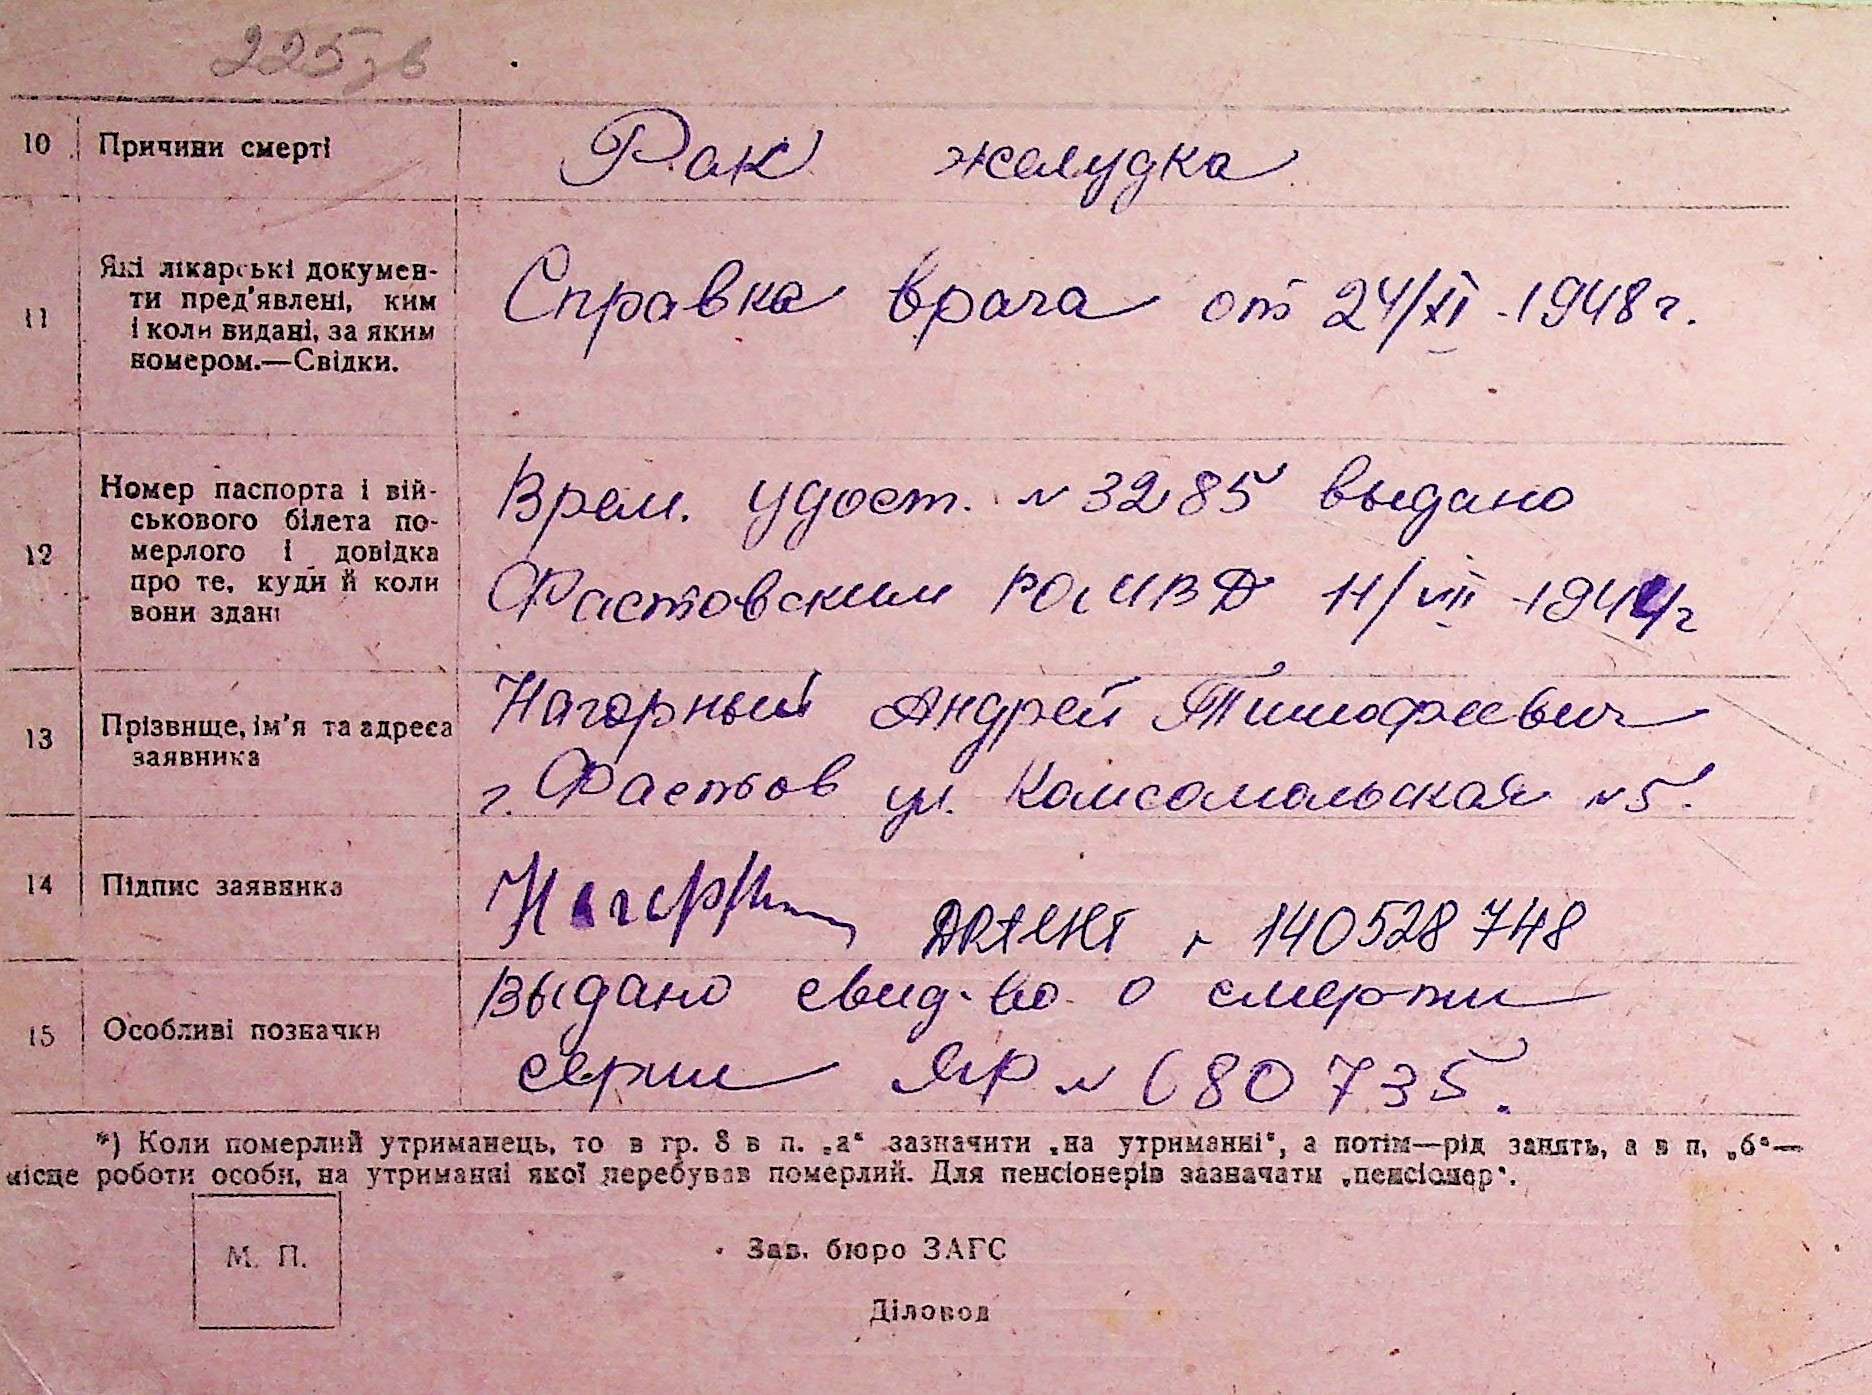 225зв
10 Причини смерті Рак желудка
11 Які лікарські документи пред'явлені, ким і коли видані, за яким номером.—Свідки. Справка врача от 24/XI-1948г.
12 Номер паспорта і вій-
ськового білета по-
мерлого і довідка
про те, куди й коли
вони здані
Врем. удост. №3285 выдано
Фастовским РО МВД 11/VIII-1944г
13 Прізвище, ім'я та адреса
заявника
Нагорный Андрей Тимофеевич
г. Фастов ул. Комсомольская №5.
14 Підпис заявника
140528748
15 Особливі позначки
Выдано свид-во о смерти
серии ЯР № 680735.
*) Коли померлий утриманець, то в гр. 8 в п. „а“ зазначити „на утриманні“, а потім—рід занять, а в п. „б“—
місце роботи особи, на утриманні якої перебував померлий. Для пенсіонерів зазначати „пенсіонер“.
М. П.
Зав. бюро ЗАГС
Діловод